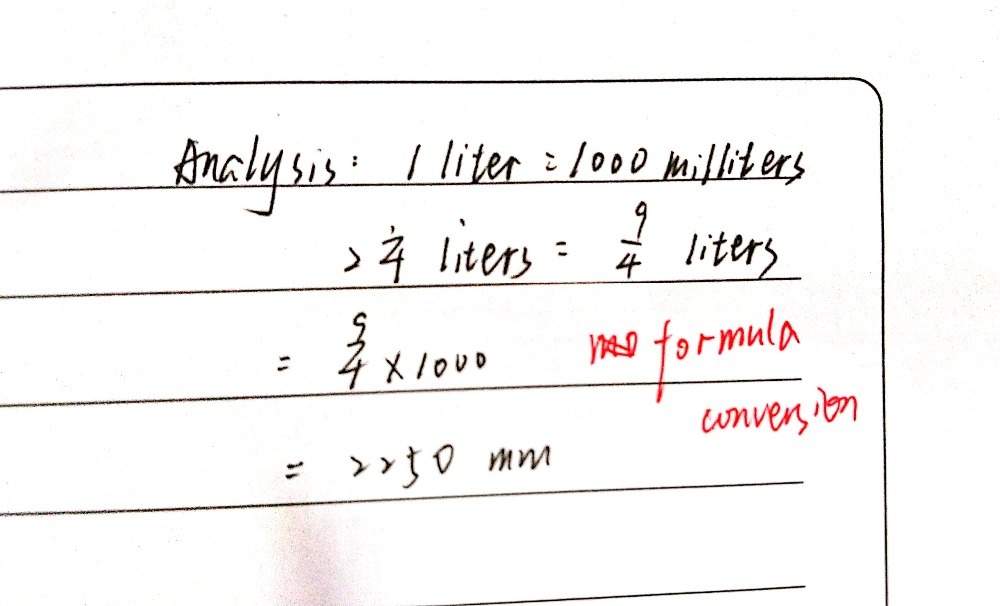 Analysis: 1 liter = 1000 milliters
2 1/4 liters = 9/4 liters
= 9/4 × 1000 formula
conversion
= 2250 mm